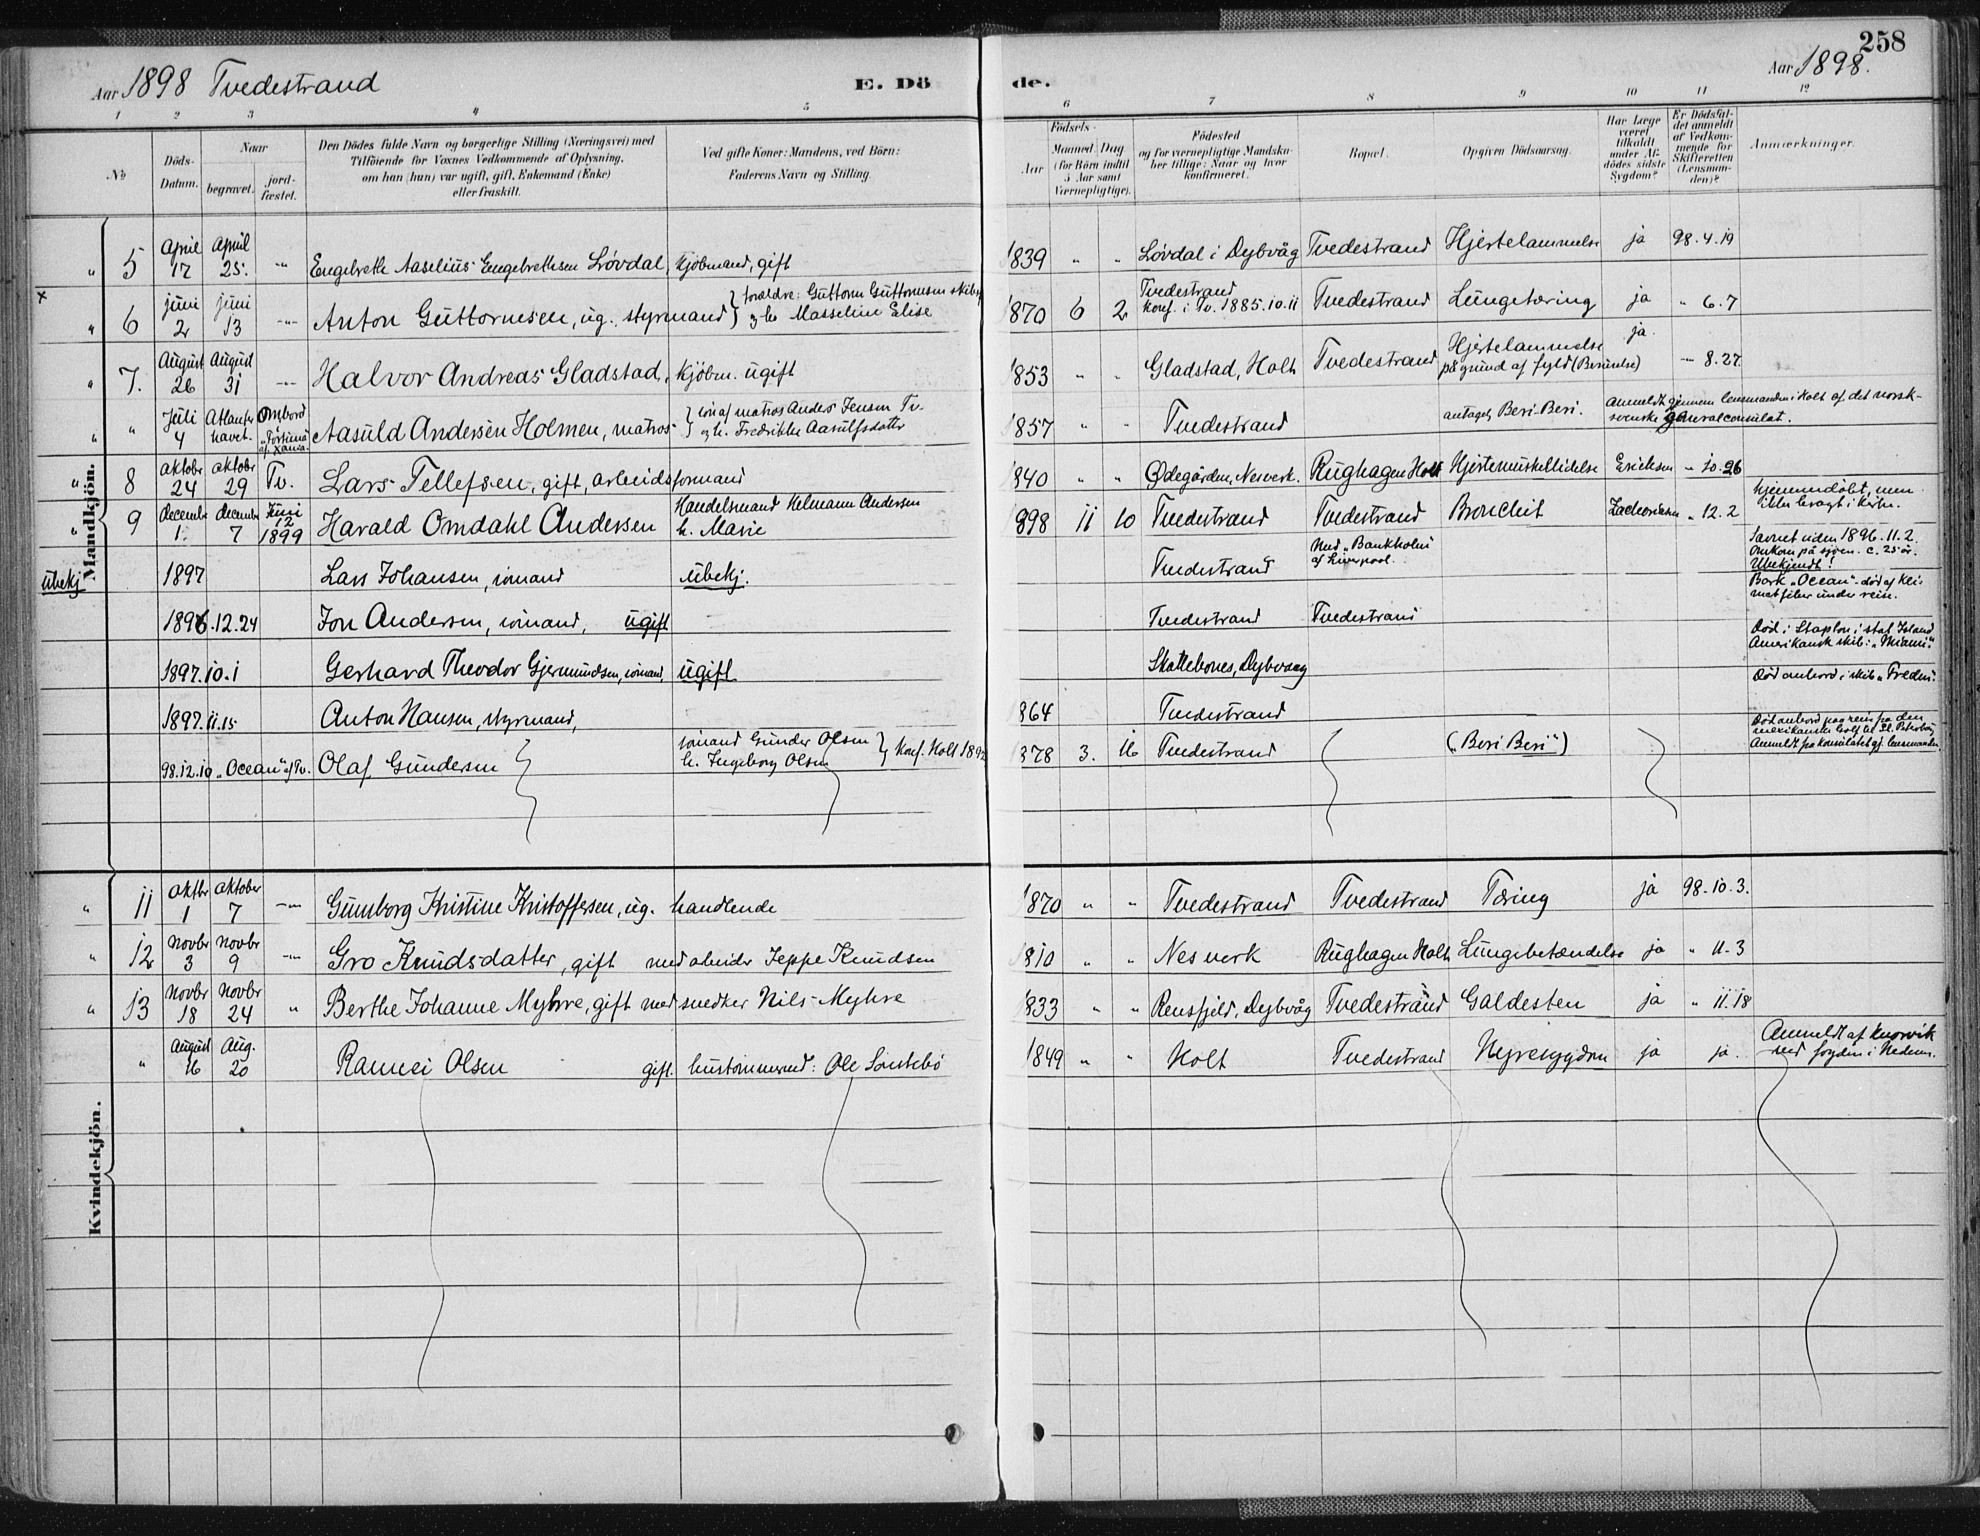 258
Aar 1898 Tvedestrand E. Dö de. Aar 1898.
1 2 3 4 5 6 7 8 9 10 11 12
No
Döds-Datum.
Naar
begravet.
jord-fæstet.
Den Dödes fulde Navn og borgerlige Stilling (Næringsvei) med
Tilföiende for Voxnes Vedkommende af Oplysning,
om han (hun) var ugift, gift, Enkemand (Enke)
eller fraskilt.
Ved gifte Koner: Mandens, ved Börn:
Faderens Navn og Stilling.
Födsels-
Aar
Maaned. Dag
(for Börn indtil
5 Aar samt
Værnepligtige).
Födested
og for værnepligtige Mandska-
ber tillige: Naar og hvor
konfirmeret.
Bopæl.
Opgiven Dödsaarsag.
Har Læge
været
tilkaldt
under Af-
dödes sidste
Sygdom?
Er Dödsfal-
det anmeldt
af Vedkom-
mende for
Skifteretten
(Lensman-
den)?
Anmærkninger.
Mandkjön.
" 5 April 17 April 25. -"- Engebreth Aaselius Engebrethsen Løvdal, Kjøbmand, gift 1839 " " Løvdal i Dybvåg Tvedestrand Hjertelammelse ja 98.4.19
x " 6 juni 2 juni 13 -"- Anton Guttormsen, ug., styrmand } forældre: Guttorm Guttormsen
og h. Masseline Elise 1870 6 2 Tvedestrand
konf. i Tv. 1885.10.11 Tvedestrand Lungetæring ja " 6.7
" 7. August 26 August 31 -"- Halvor Andreas Gladstad, kjøbm. ugift 1853 " " Gladstad, Holt Tvedestrand Hjertelammelse
på grund af fyld (Beruselse) ja. -"- 8.27
" " Juli 4 Atlanterhavet. Ombord "Fortuna" af Xania. Aasuld Andersen Holmen, matros { søn af matros Anders Jensen Tv.
og h. Fredrikke Aasulfsdatter 1857 " " Tvedestrand antagel. Beri-Beri. anmeldt gjennem lensmanden i Holt af det norsk-
svenske generalconsulat.
" 8 oktobr 24 oktobr 29 Tv. Lars Tellefsen, gift, arbeidsformand 1840 " " Ødegården, Nesverk. Rughagen Holt Hjertemuskellidelse Ericksen -"- 10.26
" 9 decembr 1. decembr 7 Juni 12 1899 Harald Omdahl Andersen Handelsmand Helmann Andersen
h. Marie 898 11 10 Tvedestrand Tvedestrand Bronchit " 12.2 hjemmedøbt, men
ikke bragt i kirke.
ubekj 1897 Lars Johansen, sømand ubekj. Tvedestrand Med "Bankholm"
af Liverpool. Savnet siden 1896.11.2.
Omkom på sjøen. c. 25 år.
Ubekjendt!
1896.12.24 Jon Andersen, sømand, ugift Tvedestrand Tvedestrand Bark "Ocean" død af kli-
matfeber under reise.
1897.10.1 Gerhard Theodor Gjermundsen, sømand, ugift Skottebones, Dybvaag Død i Staplon i stat Island
Amerikansk skib: "Miami"
1897.11.15 Anton Hansen, styrmand, 864 Tvedestrand Død ombord i skib "Freden".
98.12.10 "Ocean" af Tv. Olaf Gundersen sømand Gunder Olsen
h. Ingeborg Olsen } Konf. Holt 1892 878 3. 16 Tvedestrand ("Beri Beri") Død ombord paa reise fra den
Anmeldt fra konsulatet gj. lensmanden.
Kvindekjön.
" 11 oktbr 1 oktober 7 -"- Gunborg Kristine Kristoffersen, ug. handlende 1870 " " Tvedestrand Tvedestrand Tæring ja 98.10.3.
" 12 novbr 3 novbr 9 -"- Gro Knudsdatter, gift med arbeider Jeppe Knudsen 1810 " " Nesverk Rughagen Holt Lungebetændelse ja " 11.3
" 13 novbr 18 novbr 24 " Berthe Johanne Myhre, gift med snedker Nils Myhre 1833 " " Rensfjeld, Dybvåg Tvedestrand Galdesten ja " 11.18
" August 16 Aug. 20 Rannei Olsen gift. hustømmermd: Ole Songebø 1849 " " Holt Tvedestrand Nyresygdom ja ja. Anmeldt af Knorvik
ved fogden i Nedenes.